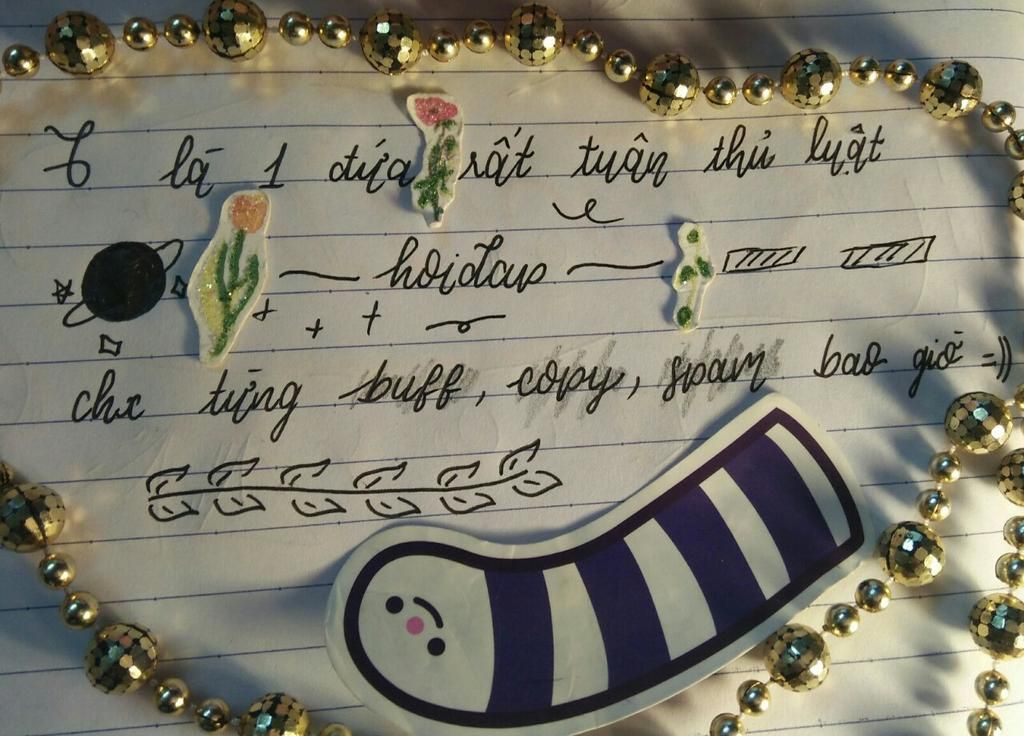 T là 1 đứa rất tuân thủ luật
hoidap
chx từng buff, copy, spam bao giờ =))